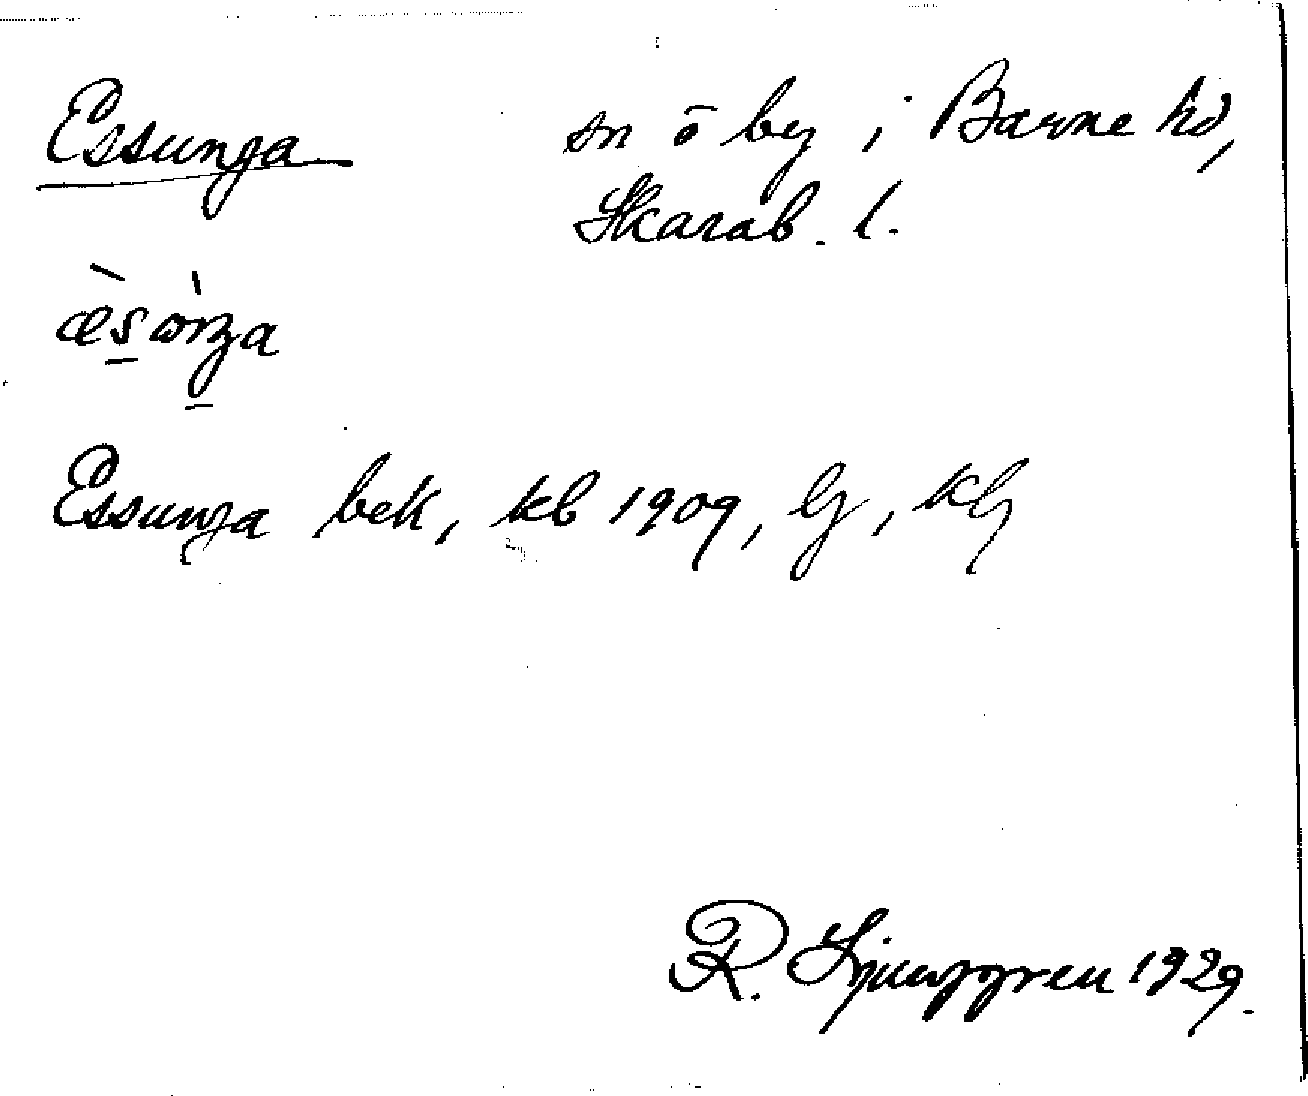 Essunga sn o by i Barne hd,
Skarab. l.
Essunga bek, kb 1909, Lj, kg
R. Ljunggren 1929.